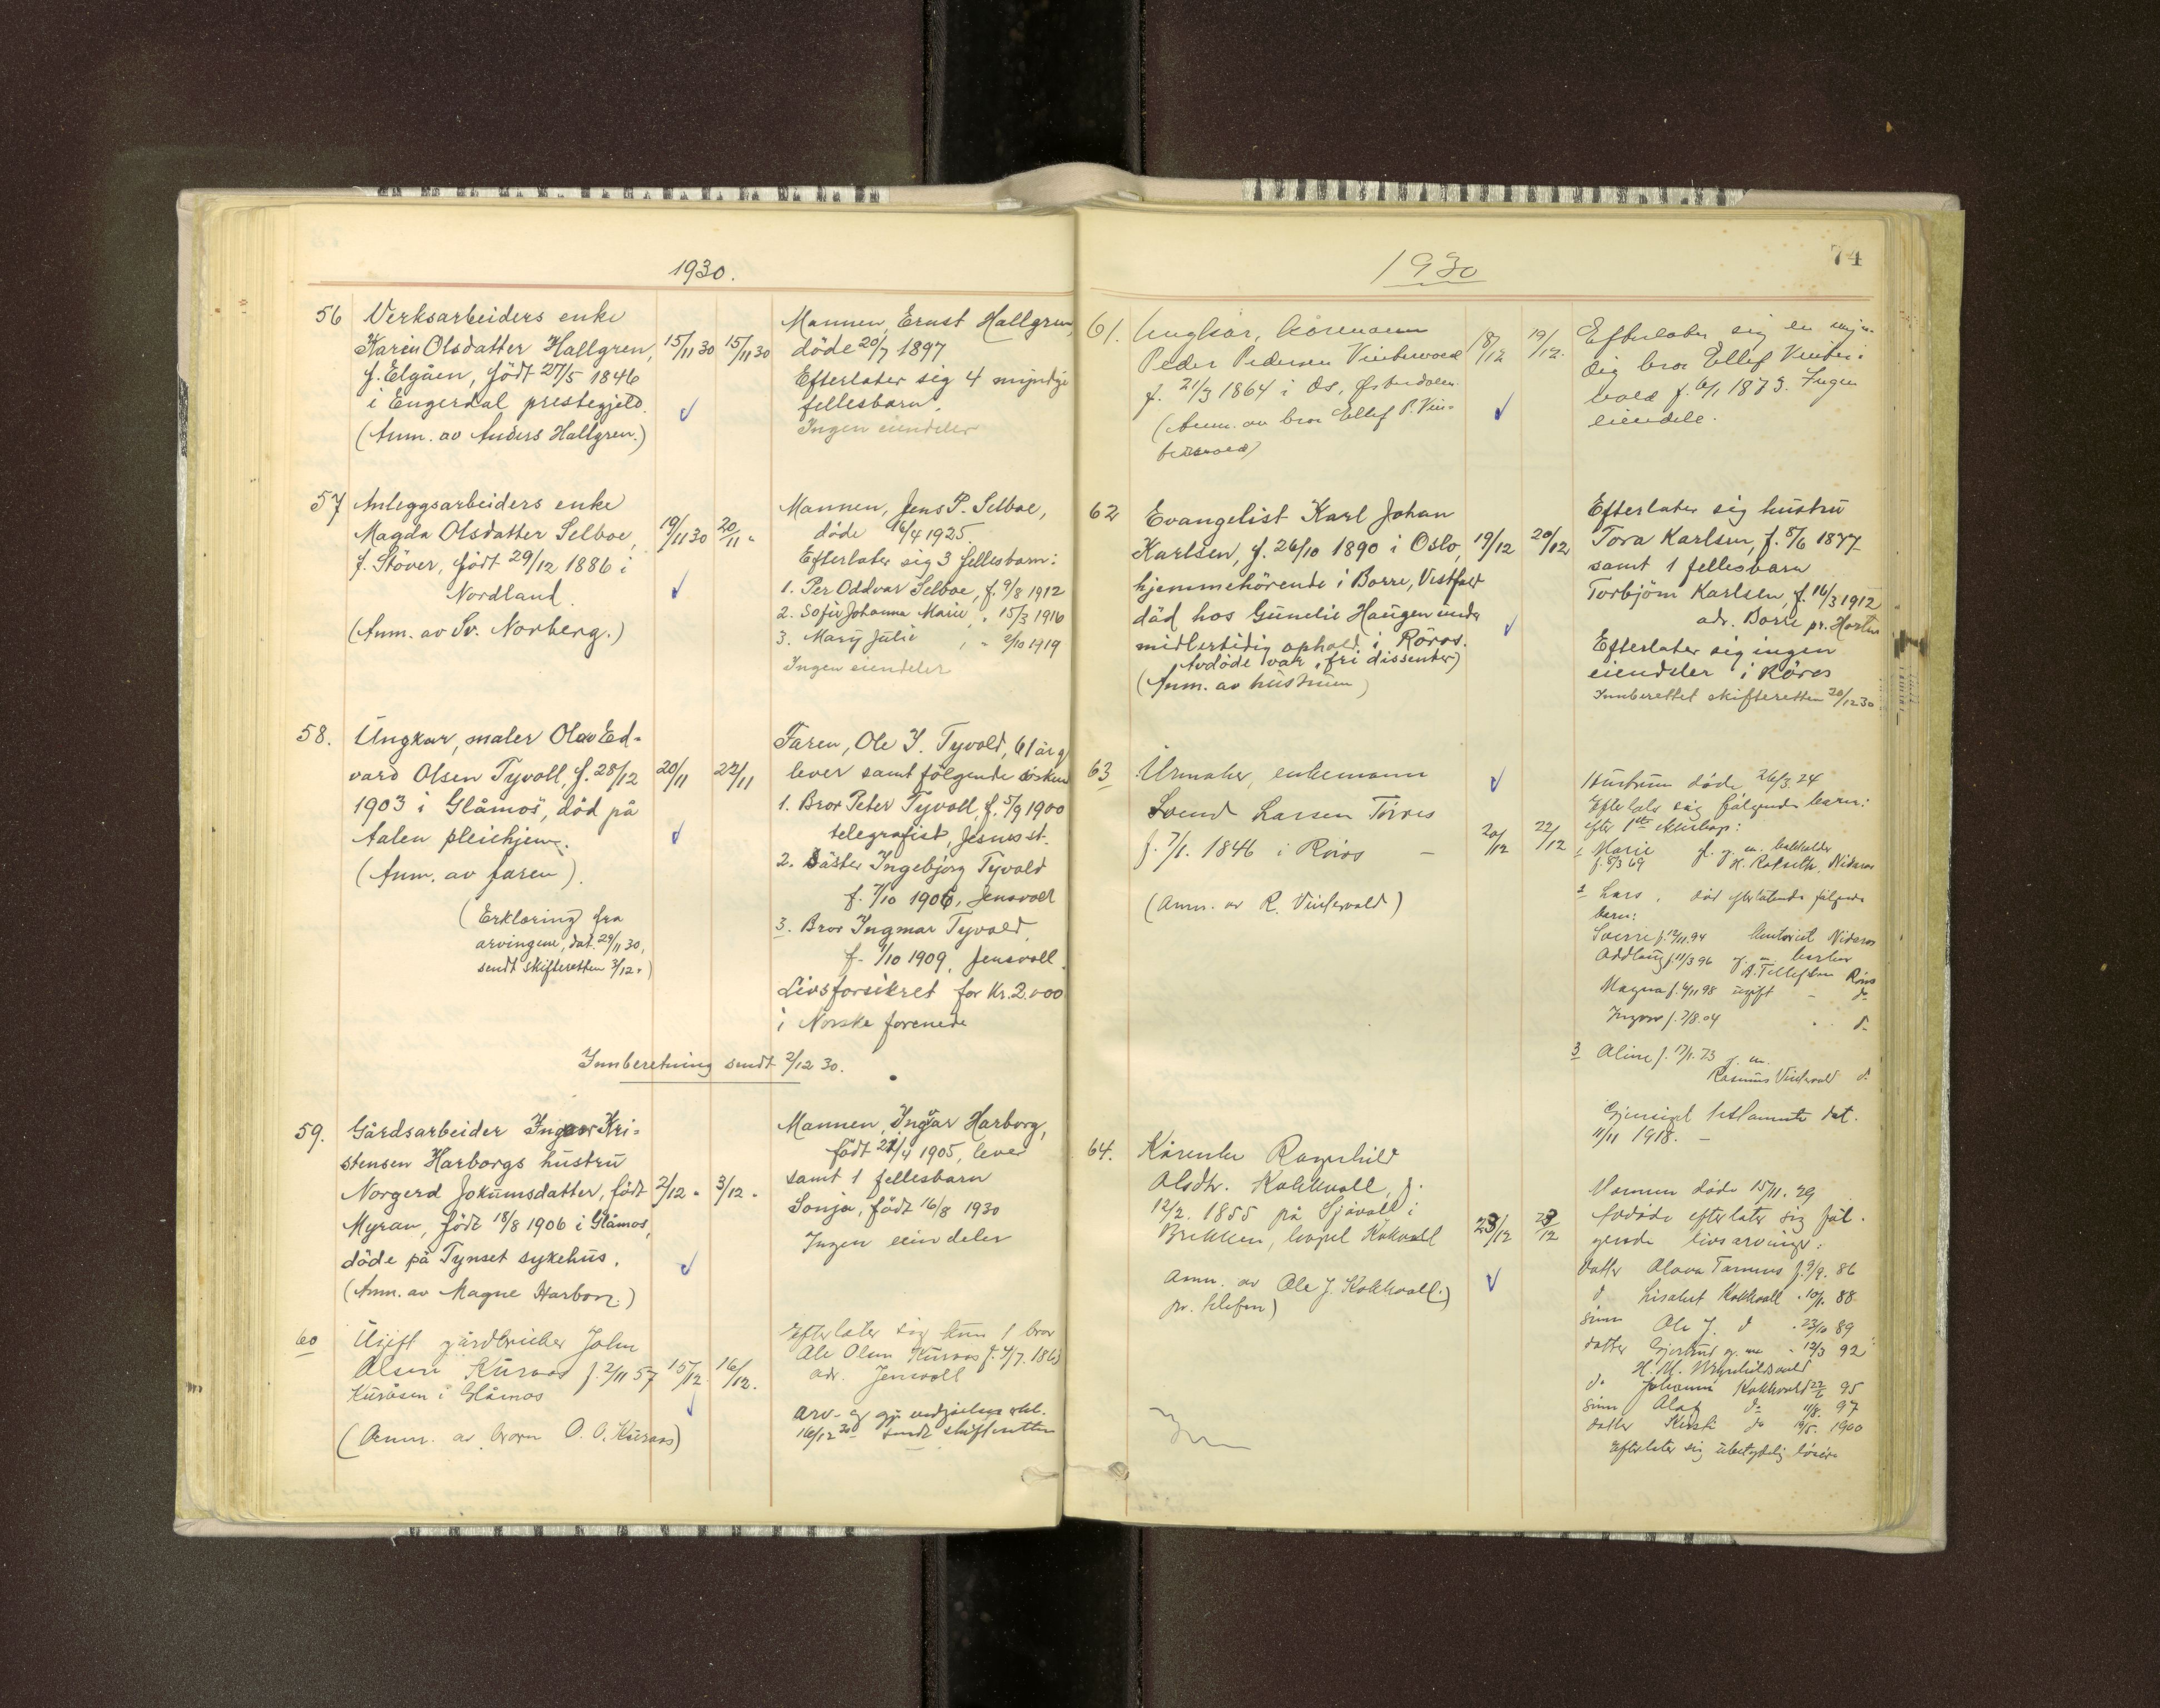 1930.
56 Verksarbeiders enke
Karen Olsdatter Hallgren, 15/11 30 15/11 30
f. Elgåen, født 27/5 1846
i Engerdal prestegjeld.
(Anm. av Anders Hallgren.)
Mannen, Ernst Hallgren,
döde 20/7 1897
Efterlater sig 4 myndige
fellesbarn.
Ingen eiendeler
57 Anleggsarbeiders enke
Magda Olsdatter Selboe, 19/11 30 20/11 "
f. Stöver, født 29/12 1886 i
Nordland.
(Anm. av Sv. Norberg.)
Mannen, Jens P. Selboe,
döde 16/4 1925.
Efterlater sig 3 fellesbarn:
1. Per Oddvar Selboe, f. 9/8 1912
2. Sofie Johanna Marie, " 15/3 1916
3. Mary Julie , " 2/10 1919
Ingen eiendeler
58. Ungkar, maler Olav Ed-
vard Olsen Tyvoll, f. 28/12 20/11 22/11
1903 i Glåmos, död på
Aalen pleiehjem.
(Anm. av faren).
(Erklæring fra
arvingene, dat. 29/11 30,
sendt skifteretten 3/12.)
Faren, Ole J. Tyvold, 61 år g
lever samt følgende søsken
1. Bror Peter Tyvoll, f. 5/9 1900
telegrafist, Jesnes st.
2. Söster Ingebjörg Tyvold
f. 7/10 1906, Jensvoll
3. Bror Ingmar Tyvold,
f. 1/10 1909, Jensvoll.
Livsforsikret for Kr. 2.000
i Norske forenede
Innberetning sendt 2/12 30.
59. Gårdsarbeider Ingvar Kri-
stensen Harborgs hustru
Norgerd Jokumsdatter, født 2/12 " 3/12 "
Myran, født 18/8 1906 i Glåmos,
döde på Tynset sykehus.
(Anm. av Magne Harborg)
Mannen, Ingvar Harborg,
født 21/4 1905, lever
samt 1 fellesbarn
Sonja, født 16/8 1930
Ingen eiendeler
60 Ugift gårdbruker John
Olsen Kuraas f. 2/11 57 15/12. 16/12.
Kuråsen i Glåmos
(Anm. av broren O. O. Kuraas)
Efterlater sig kun 1 bror
Ole Olsen Kuraas f. 4/7. 186
adr. Jensvoll
Arv- og
16/12 30 sendt skifteretten
74
1930
61. Ungkar,
Peder Pedersen Vintervold 18/12 19/12.
f. 21/3 1864 i Os, Østerdalen
(Anm. av bror Ellef P. Vin-
tervold)
Efterlater sig en myn-
dig bror Ellef Vinter-
vold f. 6/1 1873. Ingen
eiendele.
62 Evangelist Karl Johan
Karlsen, f. 26/10 1890 i Oslo, 19/12 20/12
hjemmehörende i Borre, Vestfold
död hos Gunelie Haugen under
midlertidig ophold i Röros.
(Avdöde var fri dissenter)
(Anm. av hustruen)
Efterlater sig hustru
Tora Karlsen, f. 8/6 1877
samt 1 fellesbarn
Torbjörn Karlsen, f. 16/3 1912
adr. Borre pr. Horten
Efterlater sig ingen
eiendeler i Röros
Innberettet skifteretten 20/12 30
63 Urmaker, enkemann
Svend Larsen Törres 20/12 22/12
f. 7/1. 1846 i Röros –
(Anm. av R. Vintervold)
Hustruen döde 26/3.24
Efterlater sig følgende barn:
efter 1ste ekteskap:
1 Marie g. m. bokholder
f. 8/3 69 K. Nidaros
2 Lars, död efterlatende følgende
barn:
Sverre f. 12/11.94 kontorist Nidaros
Addlaug f. 11/3 96 g. m. barber
A. Tellefsen Röros
Magna f. 4/11 98 ugift – do
Ingvar f. 7/8.04 " " do
3 Aline f. 17/1.73 g. m.
Rasmus Vintervold do
Gjensidig testamente dat.
11/11 1918. –
64. Kårenke Ragnhild
Olsdtr. Kokkvoll, f.
12/2. 1855 på Sjövoll i
Brekken, bopel Kokkvoll 23/12 23/12
Anm. av Ole J. Kokkvoll.)
pr. telefon)
Mannen döde 15/11. 29
Avdöde efterlater sig föl-
gende livsarvinger:
datter Olava Tamnes f. 9/9. 86
d Lisabet Kokkvoll " 10/1. 88
sönn Ole J. d " 23/10 89
datter Gjertrud g. m. " 12/3 92
do Johanna Kokkvold 22/6 95
sönn Olaf do 11/8. 97
datter Kirsti do 19/5. 1900
Efterlater sig ubetydelig lösöre